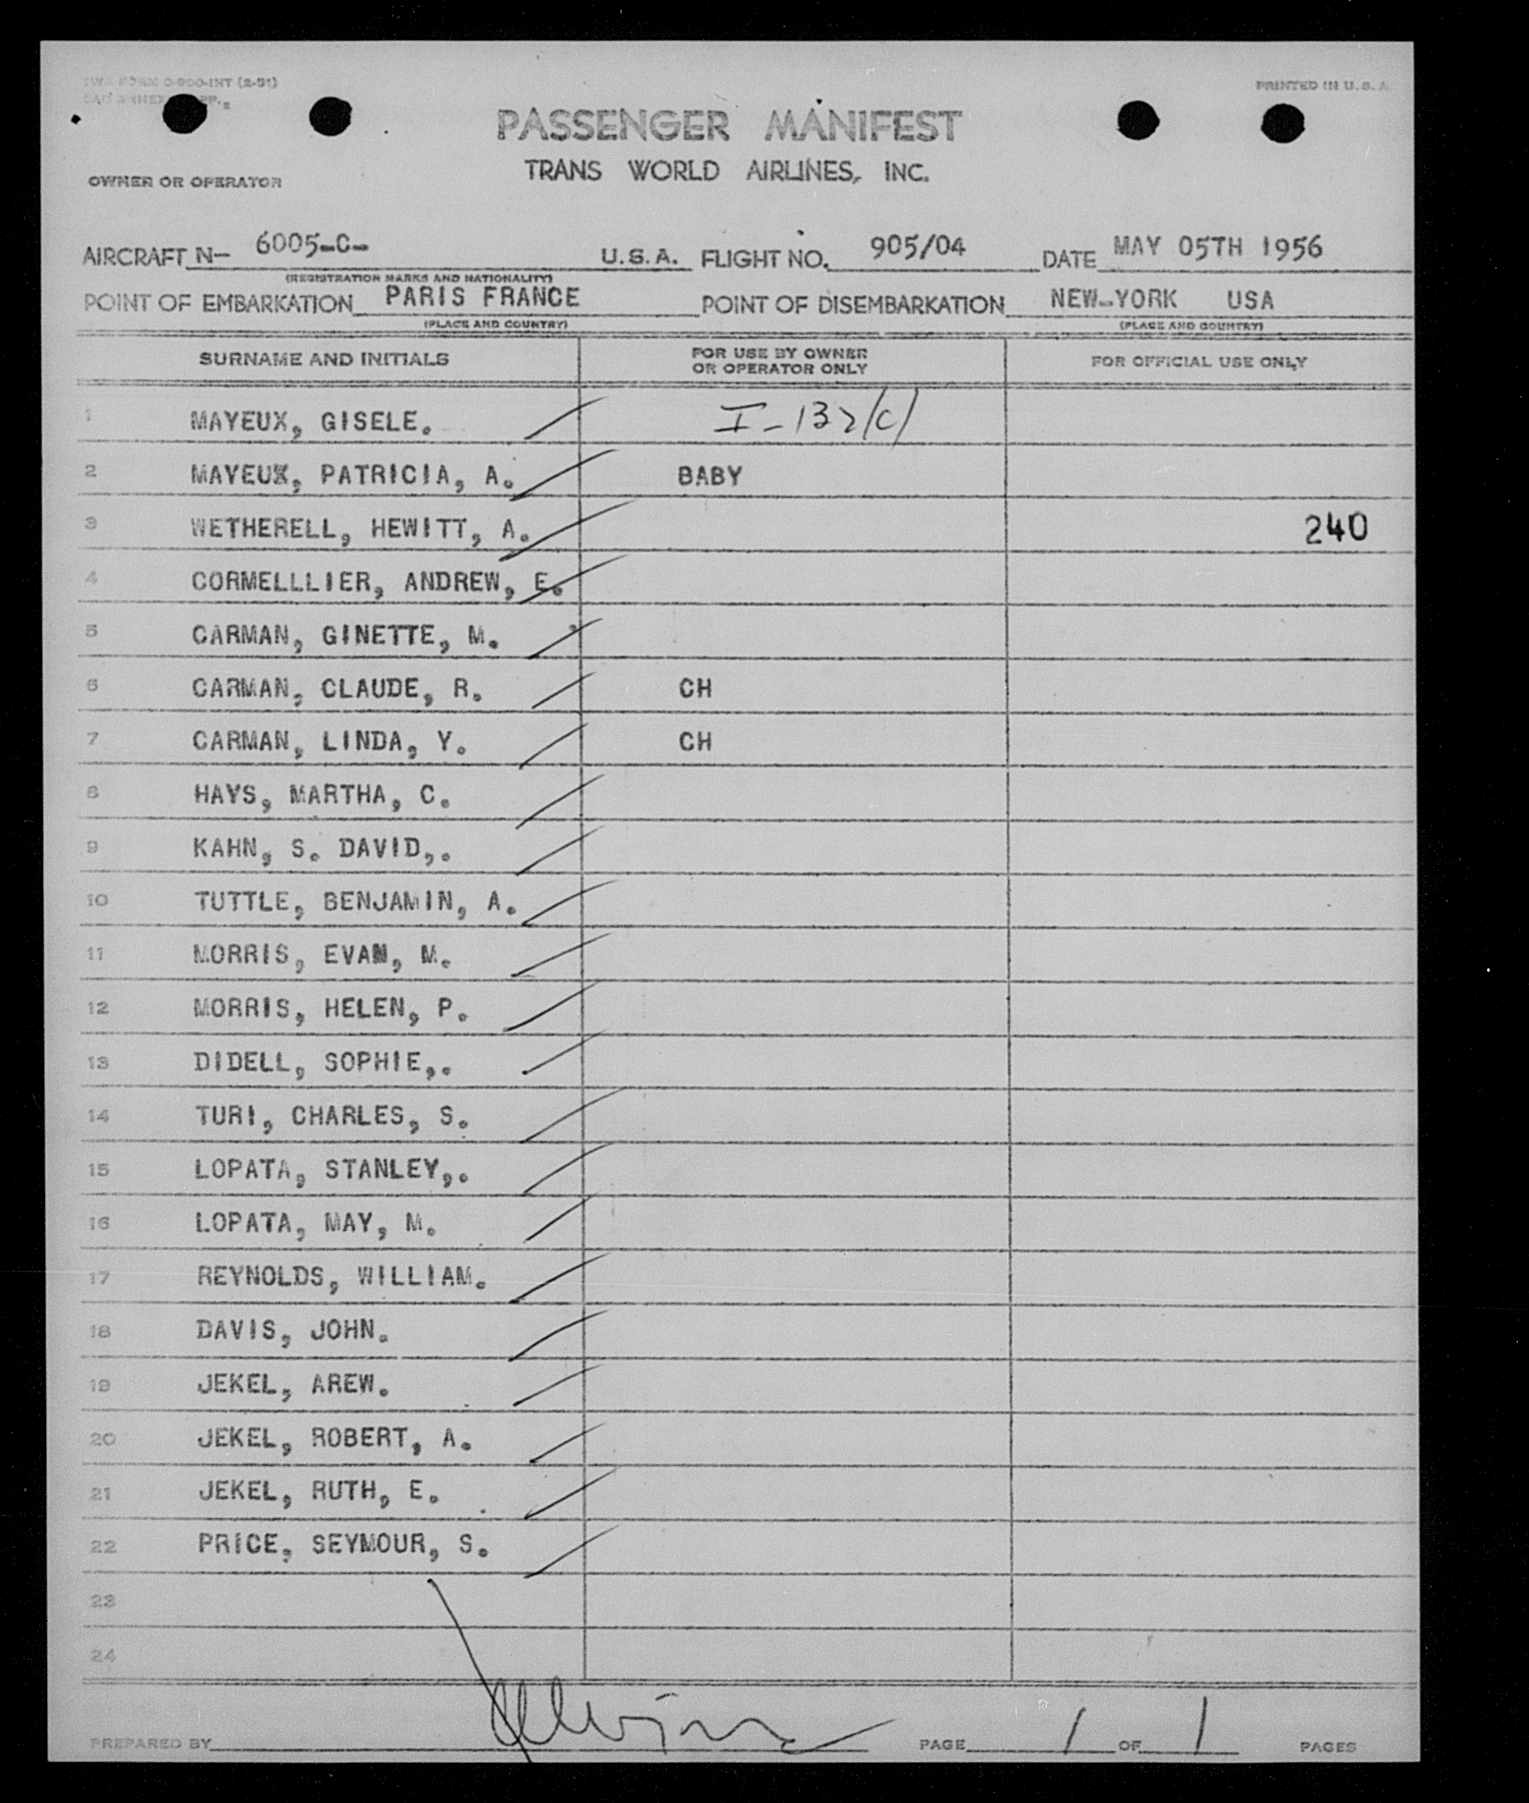 TWA FORM O-900-INT (2-51)
PRINTED IN U.S.A.
PASSENGER MANIFEST
TRANS WORLD AIRLINES, INC.
OWNER OR OPERATOR
AIRCRAFT N- 6005-C- U.S.A. FLIGHT NO. 905/04 DATE MAY 05TH 1956
(REGISTRATION MARKS AND NATIONALITY)
POINT OF EMBARKATION PARIS FRANCE POINT OF DISEMBARKATION NEW-YORK USA
(PLACE AND COUNTRY) (PLACE AND COUNTRY)
SURNAME AND INITIALS FOR USE BY OWNER OR OPERATOR ONLY FOR OFFICIAL USE ONLY
1 MAYEUX, GISELE. I-132/c/
2 MAYEUX, PATRICIA, A. BABY
3 WETHERELL, HEWITT, A. 240
4 CORMELLLIER, ANDREW, E.
5 CARMAN, GINETTE, M.
6 CARMAN, CLAUDE, R. CH
7 CARMAN, LINDA, Y. CH
8 HAYS, MARTHA, C.
9 KAHN, S. DAVID,.
10 TUTTLE, BENJAMIN, A.
11 MORRIS, EVAN, M.
12 MORRIS, HELEN, P.
13 DIDELL, SOPHIE,.
14 TURI, CHARLES, S.
15 LOPATA, STANLEY,.
16 LOPATA, MAY, M.
17 REYNOLDS, WILLIAM.
18 DAVIS, JOHN.
19 JEKEL, AREW.
20 JEKEL, ROBERT, A.
21 JEKEL, RUTH, E.
22 PRICE, SEYMOUR, S.
23
24
PREPARED BY PAGE 1 OF 1 PAGES